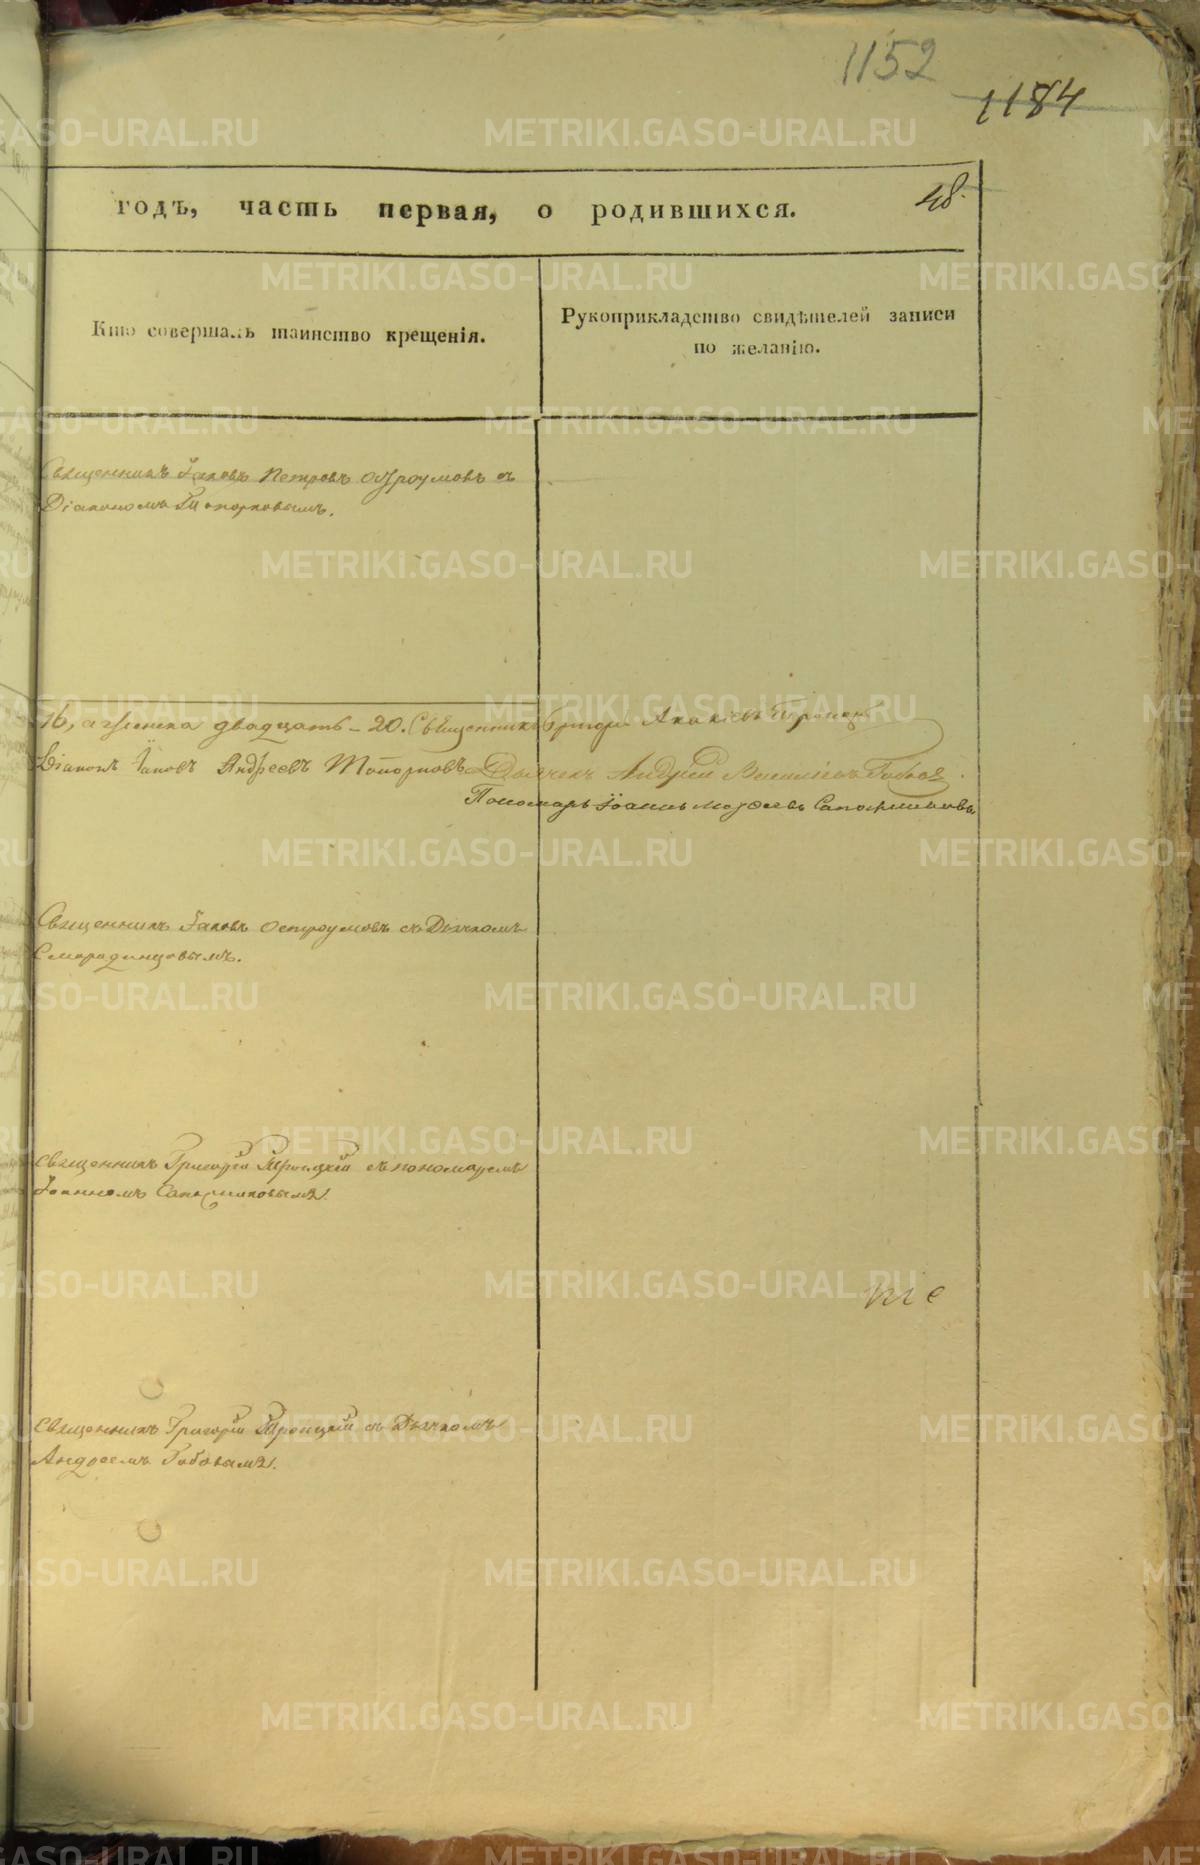 1152
1184
годъ, часть первая, о родившихся.
48.
Кто совершалъ таинство крещенія.
Рукоприкладство свидѣтелей записи
по желанію.
Священникъ Іаковъ Петровъ Остроумовъ съ
Діакономъ Топорковымъ.
16, а женска двадцать - 20. Священникъ Григорій Акакіевъ Троицкій
Діаконъ Іаковъ Андреевъ Топорковъ Дьячекъ Андрей Василіевъ
Пономарь Іоаннъ Сапожниковъ
Священникъ Іаковъ Остроумовъ съ Дьячкомъ
Смородинцовымъ.
Священникъ Григорій Троицкій съ пономаремъ
Іоанномъ Сапожниковымъ.
Священникъ Григорій Троицкій съ Дьячкомъ
Андреемъ
METRIKI.GASO-URAL.RU